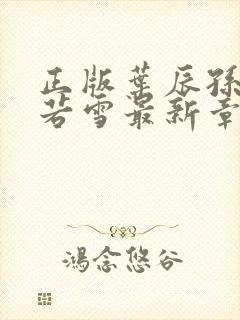 正版叶辰孙
若雪最新章
鸿念悠谷